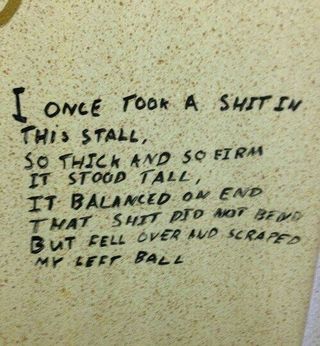 I ONCE TOOK A SHIT IN
THIS STALL,
SO THICK AND SO FIRM
IT STOOD TALL,
IT BALANCED ON END
THAT SHIT DID NOT BEND
BUT FELL OVER AND SCRAPED
MY LEFT BALL